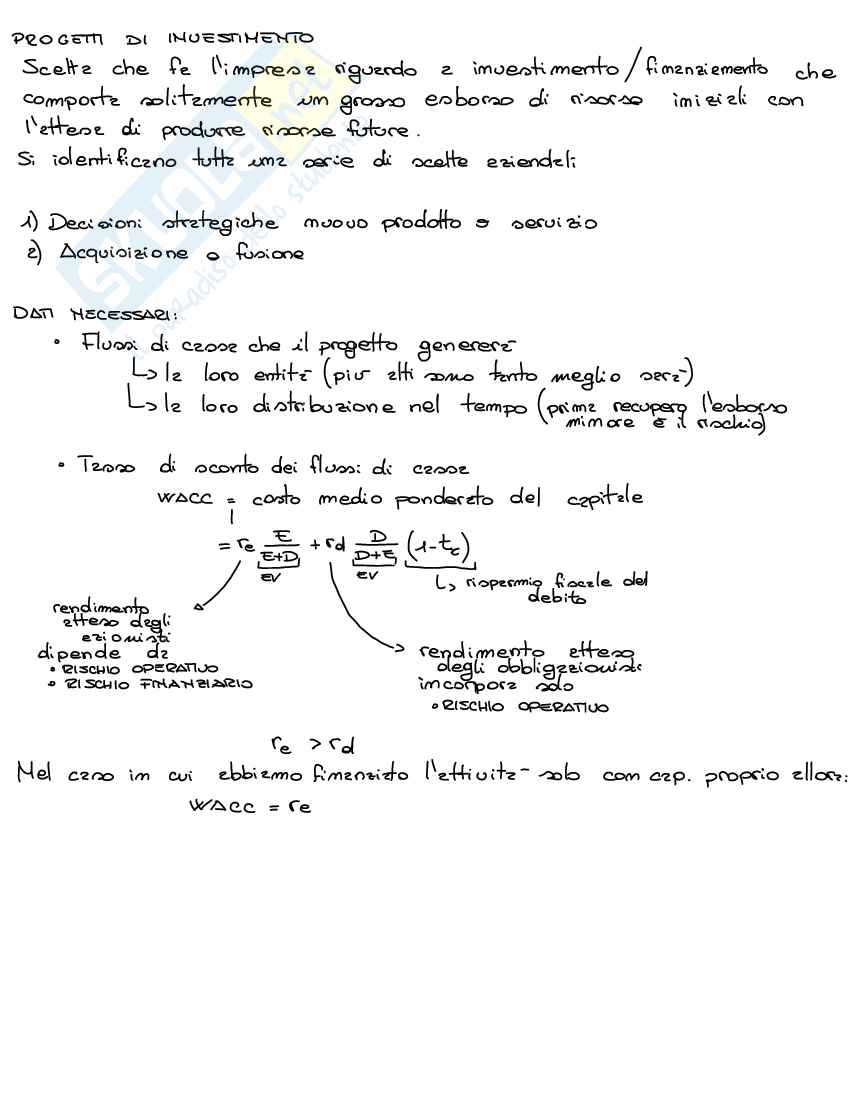 PROGETTI DI INVESTIMENTO
Scelta che fa l'impresa riguardo a investimento/finanziamento che
comporta solitamente un grosso esborso di risorse iniziali con
l'attesa di produrre risorse future.
Si identificano tutta una serie di scelte aziendali
1) Decisioni strategiche nuovo prodotto o servizio
2) Acquisizione o fusione
DATI NECESSARI:
• Flussi di cassa che il progetto genererà
↳ la loro entità (più alti sono tanto meglio sarà)
↳ la loro distribuzione nel tempo (prima recupero l'esborso
minore è il rischio)
• Tasso di sconto dei flussi di cassa
WACC = costo medio ponderato del capitale
= re E/(E+D) + rd D/(D+E) (1-tc)
EV EV ↳ risparmio fiscale del
debito
rendimento
atteso dagli
azionisti
dipende da
• RISCHIO OPERATIVO
• RISCHIO FINANZIARIO
rendimento atteso
degli obbligazionisti
incorpora solo
• RISCHIO OPERATIVO
re > rd
Nel caso in cui abbiamo finanziato l'attività solo con cap. proprio allora:
WACC = re
SKUOLA.net
il paradiso dello studente